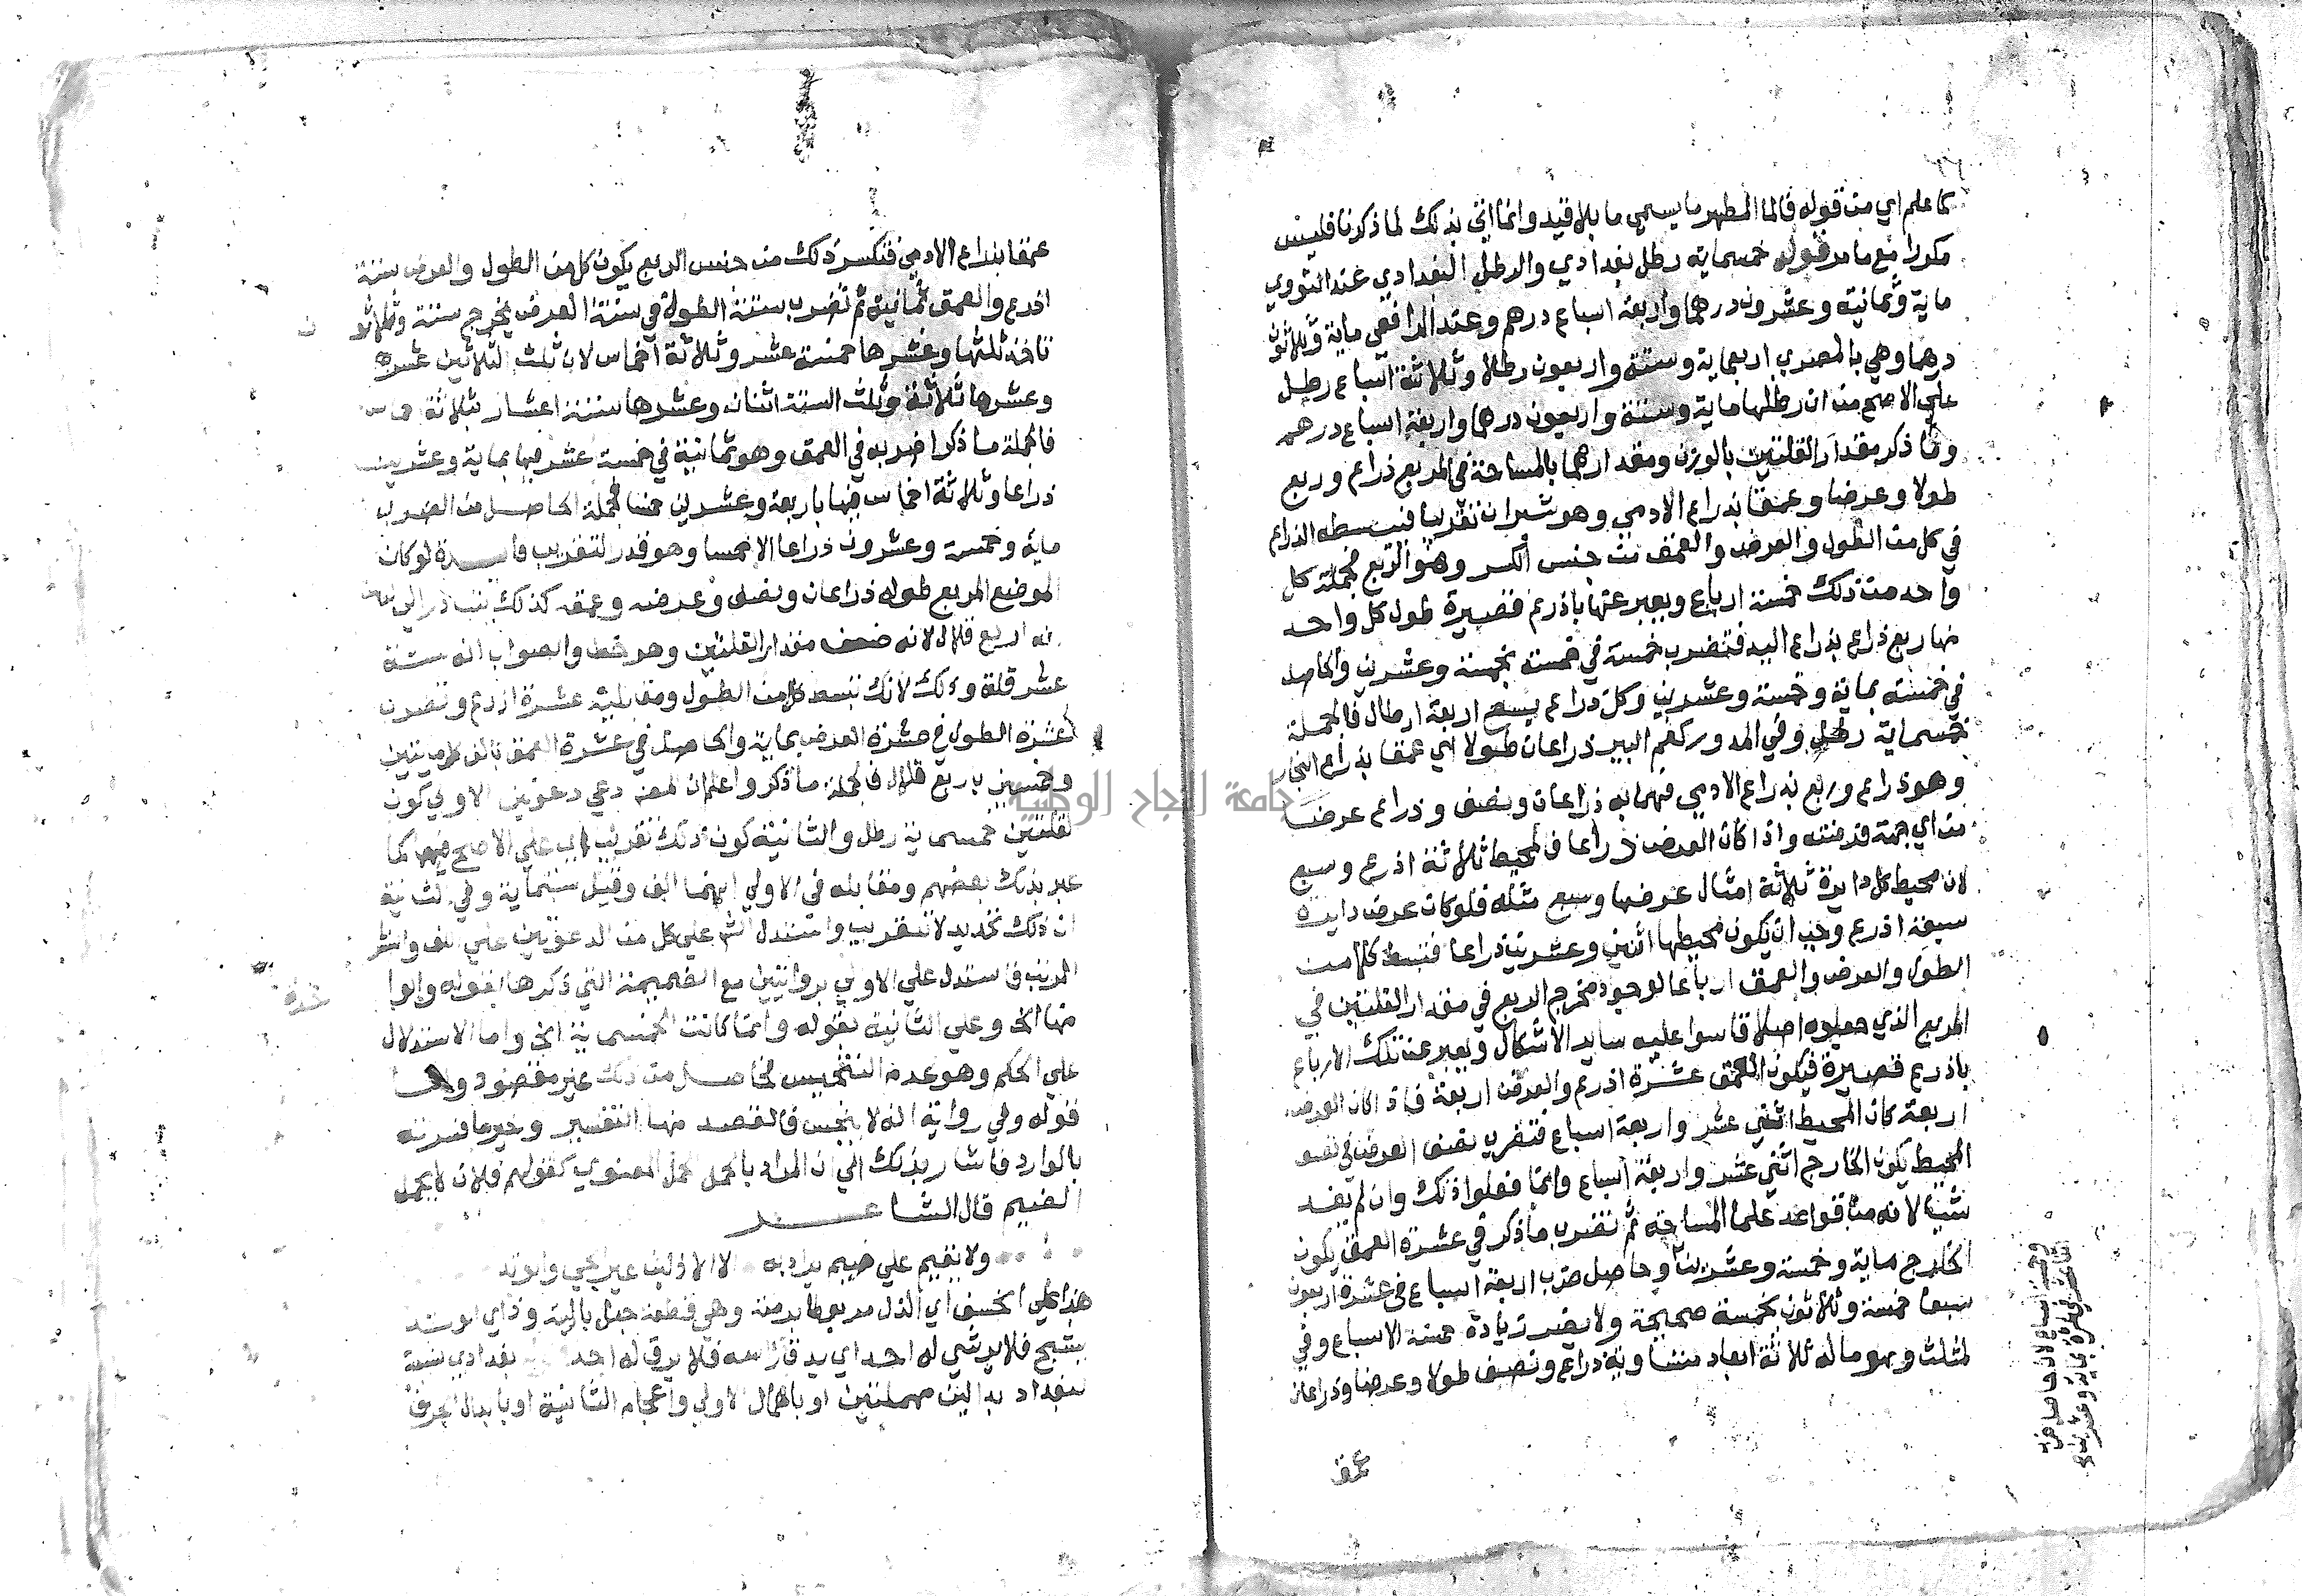 كما علم اي من قوله فالما المطهر ما يسمي ما بلا قيد وانما اتي بذلك لما ذكرنا فليس
مكررا مع ما مر قوله خمسماية رطل بغدادي والرطل البغدادي عند النووي
ماية وثمانية وعشرون درهما واربعة اسباع درهم وعند الرافعي ماية وثلاثون
درهما وهي بالمصري اربعماية وستة واربعون رطلا وثلاثة اسباع رطل
علي الاصح من ان رطلها ماية وستة واربعون درهما واربعة اسباع درهم
وما ذكر مقدار القلتين بالوزن ومقدارهما بالمساحة في المربع ذراع وربع
طولا وعرضا وعمقا بذراع الادمي وهو شبران تقريبا فيبسط الذراع
في كل من الطول والعرض والعمق من جنس الكسر وهو الربع فجملة كل
واحد من ذلك خمسة ارباع ويعبر عنها باذرع قصيرة طول كل واحد
منها ربع ذراع بذراع اليد فتضرب خمسة في خمسة بخمسة وعشرين والحاصل
في خمسة بماية وخمسة وعشرين وكل ذراع يسع اربعة ارطال فالجملة
خمسماية رطل وفي المدور كفم البير ذراعان طولا اي عمقا بذراع النجار
وهو ذراع وربع بذراع الادمي فهما به ذراعان ونصف وذراع عرضا
من اي جهة فرضته واذا كان العرض ذراعا فالمحيط ثلاثة اذرع وسبع
لان محيط كل دايرة ثلاثة امثال عرضها وسبع مثله فلو كان عرض دايرة
سبعة اذرع وجب ان يكون محيطها اثنين وعشرين ذراعا فتبسط كلا من
الطول والعرض والعمق ارباعا لوجود مخرج الربع في مقدار القلتين في
المربع الذي جعلوه اصلا قاسوا عليه ساير الاشكال ويعبر عن تلك الارباع
باذرع قصيرة فيكون العمق عشرة اذرع والعرض اربعة فاذا كان العرض
اربعة كان المحيط اثني عشر واربعة اسباع فتضرب نصف العرض في نصف
المحيط يكون الخارج اثني عشر واربعة اسباع وانما فعلوا ذلك وان لم يفد
شيا لانه من قواعد علما المساحة ثم تضرب ما ذكر في عشرة العمق يكون
الخارج ماية وخمسة وعشرين وحاصل ضرب اربعة اسباع في عشرة اربعون
سبعا خمسة وثلاثون بخمسة صحيحة ولا يضر زيادة خمسة الاسباع وفي
لمثلث وهو ما له ثلاثة ابعاد متساوية ذراع ونصف طولا وعرضا وذراعان
عمقا
عمقا بذراع الادمي فتكسر ذلك من جنس الربع يكون كل من الطول والعرض ستة
اذرع والعمق ثمانية ثم تضرب ستة الطول في ستة العرض يخرج ستة وثلاثون
تاخذ ثلثها وعشرها خمسة عشر وثلاثة اخماس لان ثلث الثلاثين عشرة
وعشرها ثلاثة وثلث الستة اثنان وعشرها ستة اعشار بثلاثة اخماس
فالجملة ما ذكر اضربه في العمق وهو ثمانية في خمسة عشر فيها بماية وعشرين
ذراعا وثلاثة اخماس فيها باربعة وعشرين خمسا فجملة الحاصل من الضرب
ماية وخمسة وعشرون ذراعا الا خمسا وهو قدر التقريب فايدة لو كان
الموضع المربع طوله ذراعان ونصف وعرضه وعمقه كذلك
انه اربع قلال لانه ضعف مقدار القلتين وهو خطا والصواب انه ستة
عشر قلة وذلك لانك تبسط كلا من الطول ومقابليه عشرة اذرع وتضرب
عشرة الطول في عشرة العرض بماية والحاصل في عشرة العمق بالف كل ميتين
وخمسين باربع قلال فالجملة ما ذكر واعلم ان المص دعي دعوتين الاولي كون
لقلتين خمسماية رطل والثانية كون ذلك تقريبا اي علي الاصح فيهما كما
عبر بذلك بعضهم ومقابله في الاولي انهما الف وقيل ستماية وفي الثانية
ان ذلك تحديد لا تقريب واستدل الش علي كل من الدعوتين علي اللف والنشر
المرتب فاستدل علي الاولي بروايتين مع الضميمة التي ذكرها بقوله والوا
منها الخ وعلي الثانية بقوله وانما كانت الخمسماية الخ واما الاستدلال
علي الحكم وهو عدم التنجيس فحاصل من ذلك غير مقصود واما
قوله وفي رواية انه لا ينجس فالقصد منها التفسير وخير ما فسرته
بالوارد فاشار بذلك الي ان المراد بالحمل الحمل المعنوي كقولهم فلان لا يحمل
الضيم قال الشاعر
ولا يقيم علي ضيم يراد به الا الاذلان عير الحي والوتد
هذا علي الخسف اي الذل مربوط برمته وهي قطعة حبل بالية وذا اي الوتد
يشج فلا يرثي له احد اي يدق راسه فلا يرق له احد بغدادي نسبة
لبغداد بدالين مهملتين او باهمال الاولي واعجام الثانية او بابدال الحرف